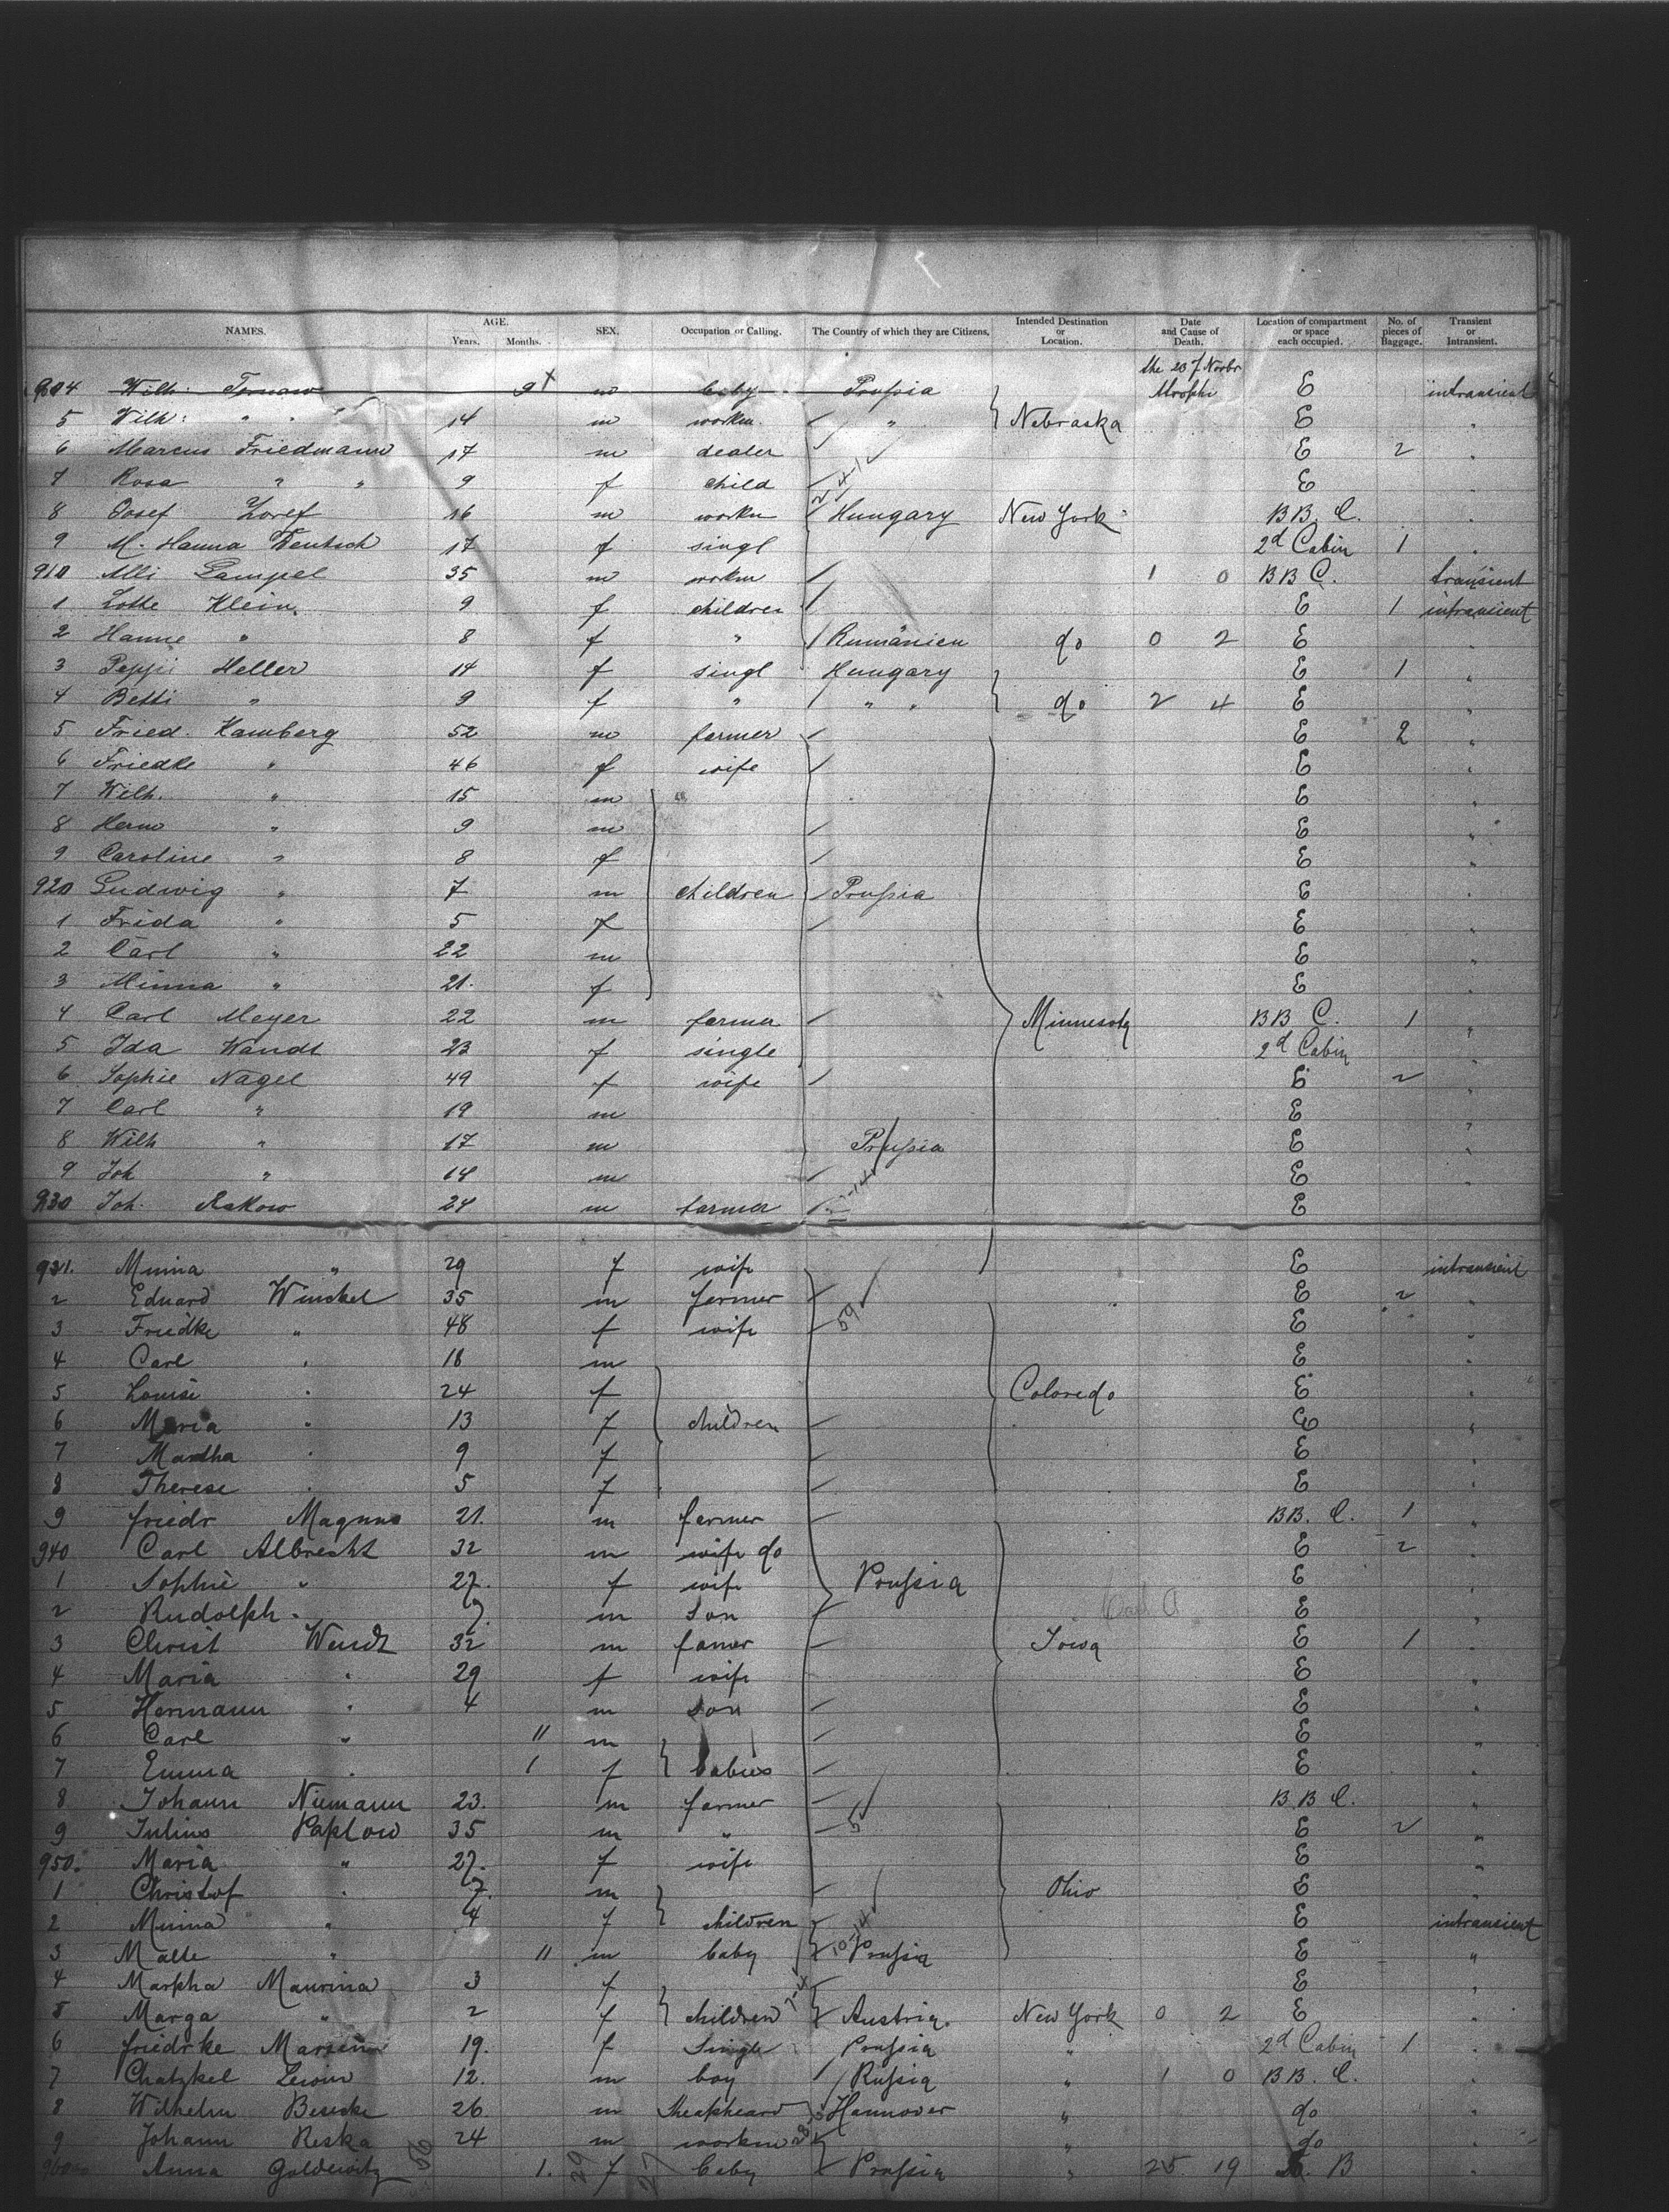 NAMES. AGE. Years. Months. SEX. Occupation or Calling. The Country of which they are Citizens. Intended Destination or Location. Date and Cause of Death. Location of compartment or space each occupied. No. of pieces of Baggage. Transient or Intransient.
904 Wilh: m baby Prußia the 20 7 Novbr E intransient
5 Wilh: " " 14 m workm. " Nebraska E "
6 Marcus Friedmann 17 m dealer E 2 "
7 Rosa " " 9 f child E
8 Josef 16 m workm Hungary New York BB. C.
9 M. Hanna Deutsch 17 f singl 2d Cabin 1 "
910 Alli Lampel 35 m workm 1 0 BB C. transient
1 Lotte Klein 9 f children E 1 intransient
2 Hanne " 8 f " Rumänien do 0 2 E "
3 Peppi Heller 14 f singl Hungary E 1 "
4 Betti " 9 f " " " do 2 4 E "
5 Fried. Hamberg 52 m farmer E 2 "
6 Friedke " 46 f wife E "
7 Wilh. " 15 m E "
8 Herm " 9 m E "
9 Caroline " 8 f E "
920 Ludwig " 7 m children Prußia E "
1 Frida " 5 f E "
2 Carl " 22 m E "
3 Minna " 21. f E "
4 Carl Meyer 22 m farmer Minnesota BB C. 1 "
5 Ida Wandt 23 f single 2d Cabin "
6 Sophie Nagel 49 f wife E 2 "
7 Carl " 19 m E "
8 Wilh " 17 m Prußia E "
9 Joh " 14 m E "
930 Joh. Rakow 24 m farmer E
931. Minna " 29 f wife E intransient
2 Eduard Winskel 35 m farmer E 2 "
3 Friedke " 48 f wife E "
4 Carl " 18 m E "
5 Louise " 24 f Coloredo E "
6 Maria " 13 f children E "
7 Martha " 9 f E "
8 Therese " 5 f E "
9 friedr Magnus 21. m farmer BB. C. 1 "
940 Carl Albrecht 32 m wife do E 2 "
1 Sophie " 27. f wife Prußia E "
2 Rudolph " 7. m son E "
3 Christ Wendt 32 m famer Iowa E 1 "
4 Maria " 29 f wife E "
5 Hermann " 4 m son E "
6 Carl " 11 m E "
7 Emma " 1 f babies E "
8 Johann Niemann 23. m farmer BB C. "
9 Julius Paplow 35 m " E 2 "
950. Maria " 27. f wife E "
1 Christof " 7. m Ohio E "
2 Minna " 4 f children E intransient
3 Malle " 11 m baby Prußia E "
4 Marpha Maurina 3 f E "
5 Marga " 2 f children Austria. New York 0 2 E "
6 friedrke 19. f Single Prußia " 2d Cabin 1 "
7 Chatzkel Lewin 12. m boy Rußia " 1 0 BB. C. "
8 Wilhelm 26. m Sheapheard Hannover " do "
9 Johann Reska 24 m workm " do "
960 Anna Goldewitz 1. f baby Prußia " 25 19 B "